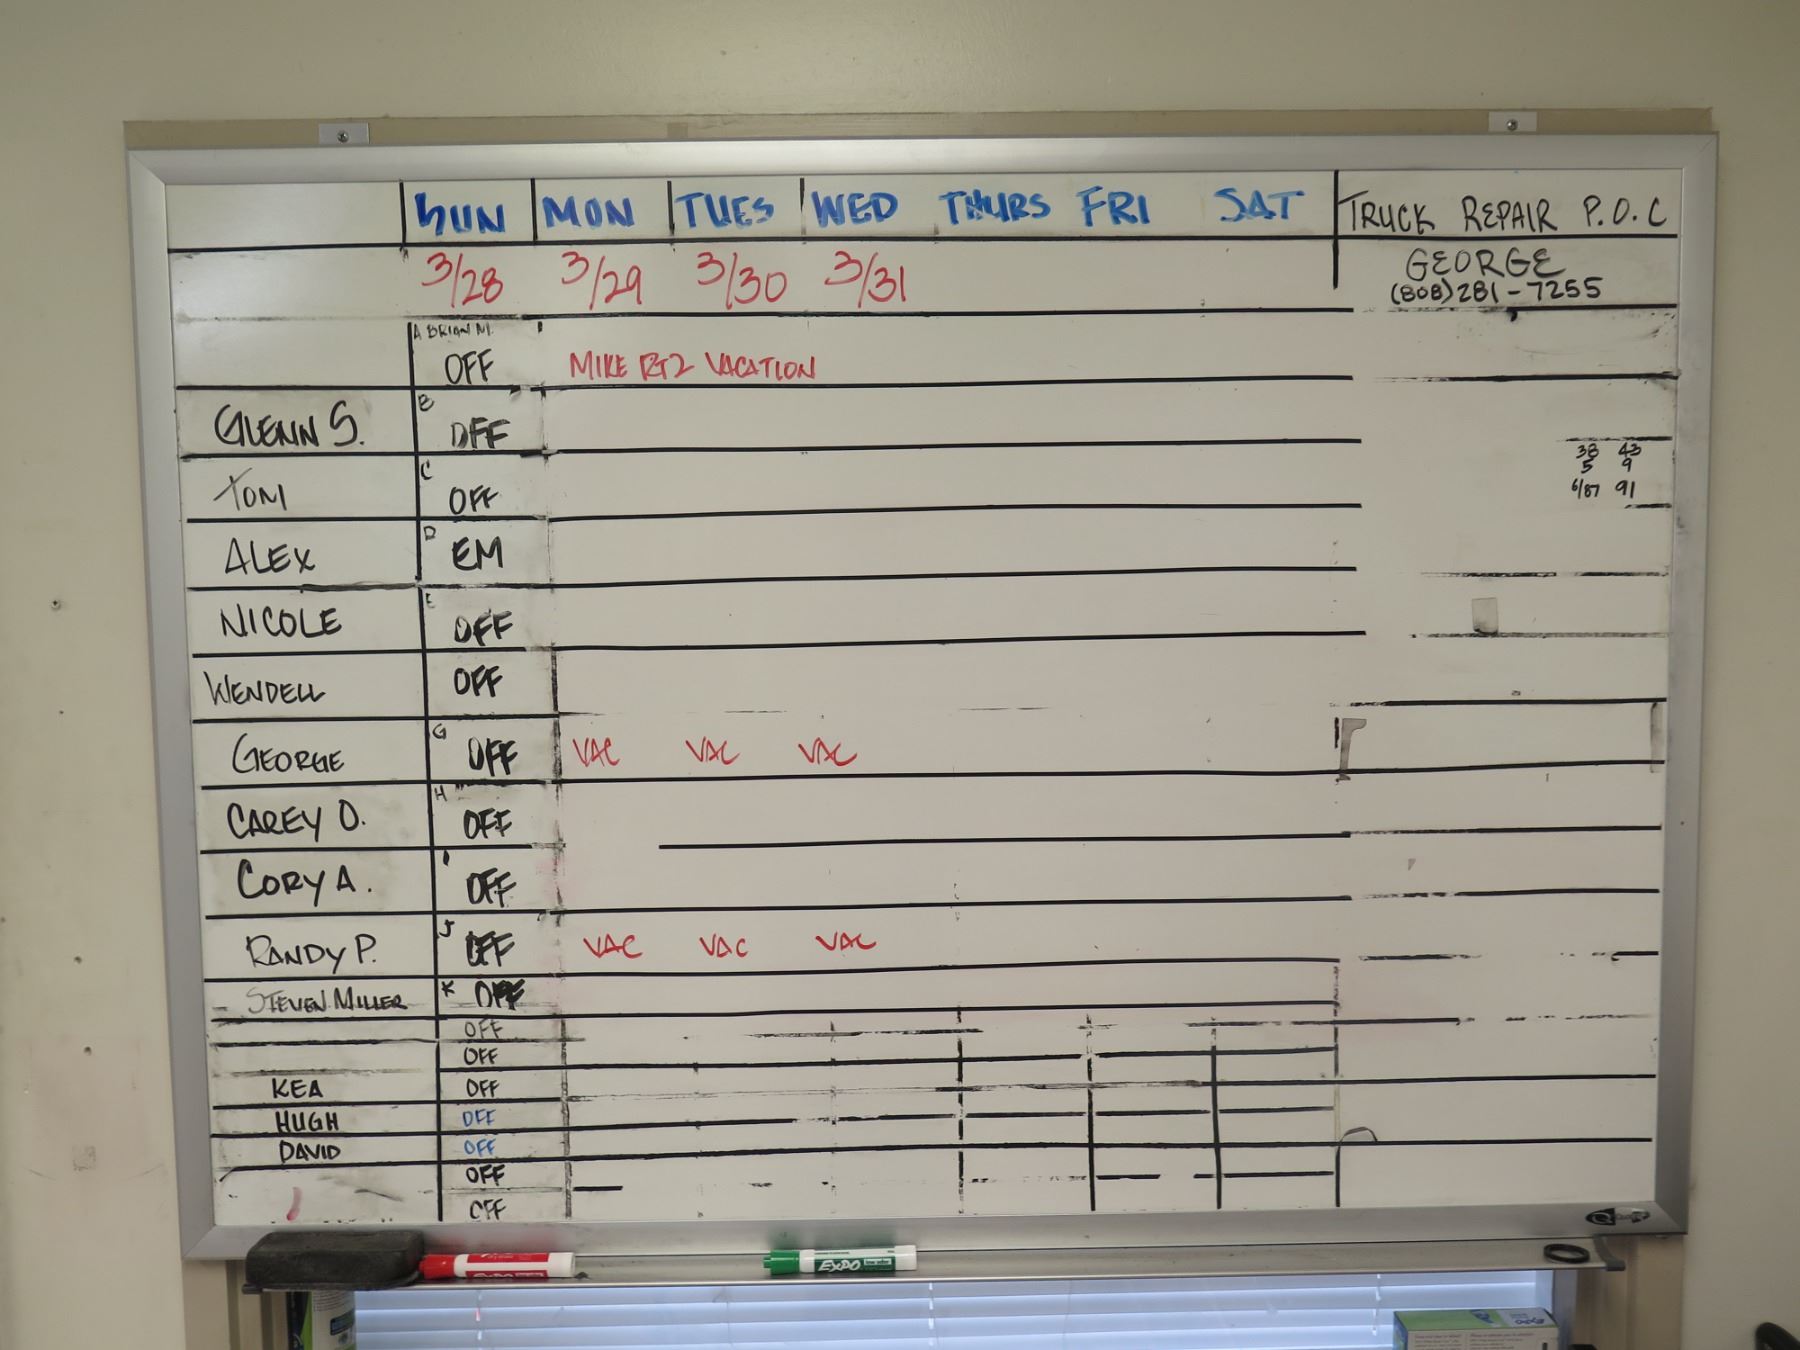 SUN MON TUES WED THURS FRI SAT TRUCK REPAIR P.O.C
3/28 3/29 3/30 3/31 GEORGE
(808)281-7255
A BRIAN M.
OFF MIKE RT2 VACATION
GLENN S. B OFF
38 43
5 9
6/87 91
TOM C OFF
ALEX D EM
NICOLE E OFF
WENDELL OFF
GEORGE G OFF VAC VAC VAC
CAREY O. H OFF
CORY A. I OFF
RANDY P. J OFF VAC VAC VAC
STEVEN MILLER K OFF
OFF
OFF
KEA OFF
HUGH OFF
DAVID OFF
OFF
OFF
EXPO
EXPO